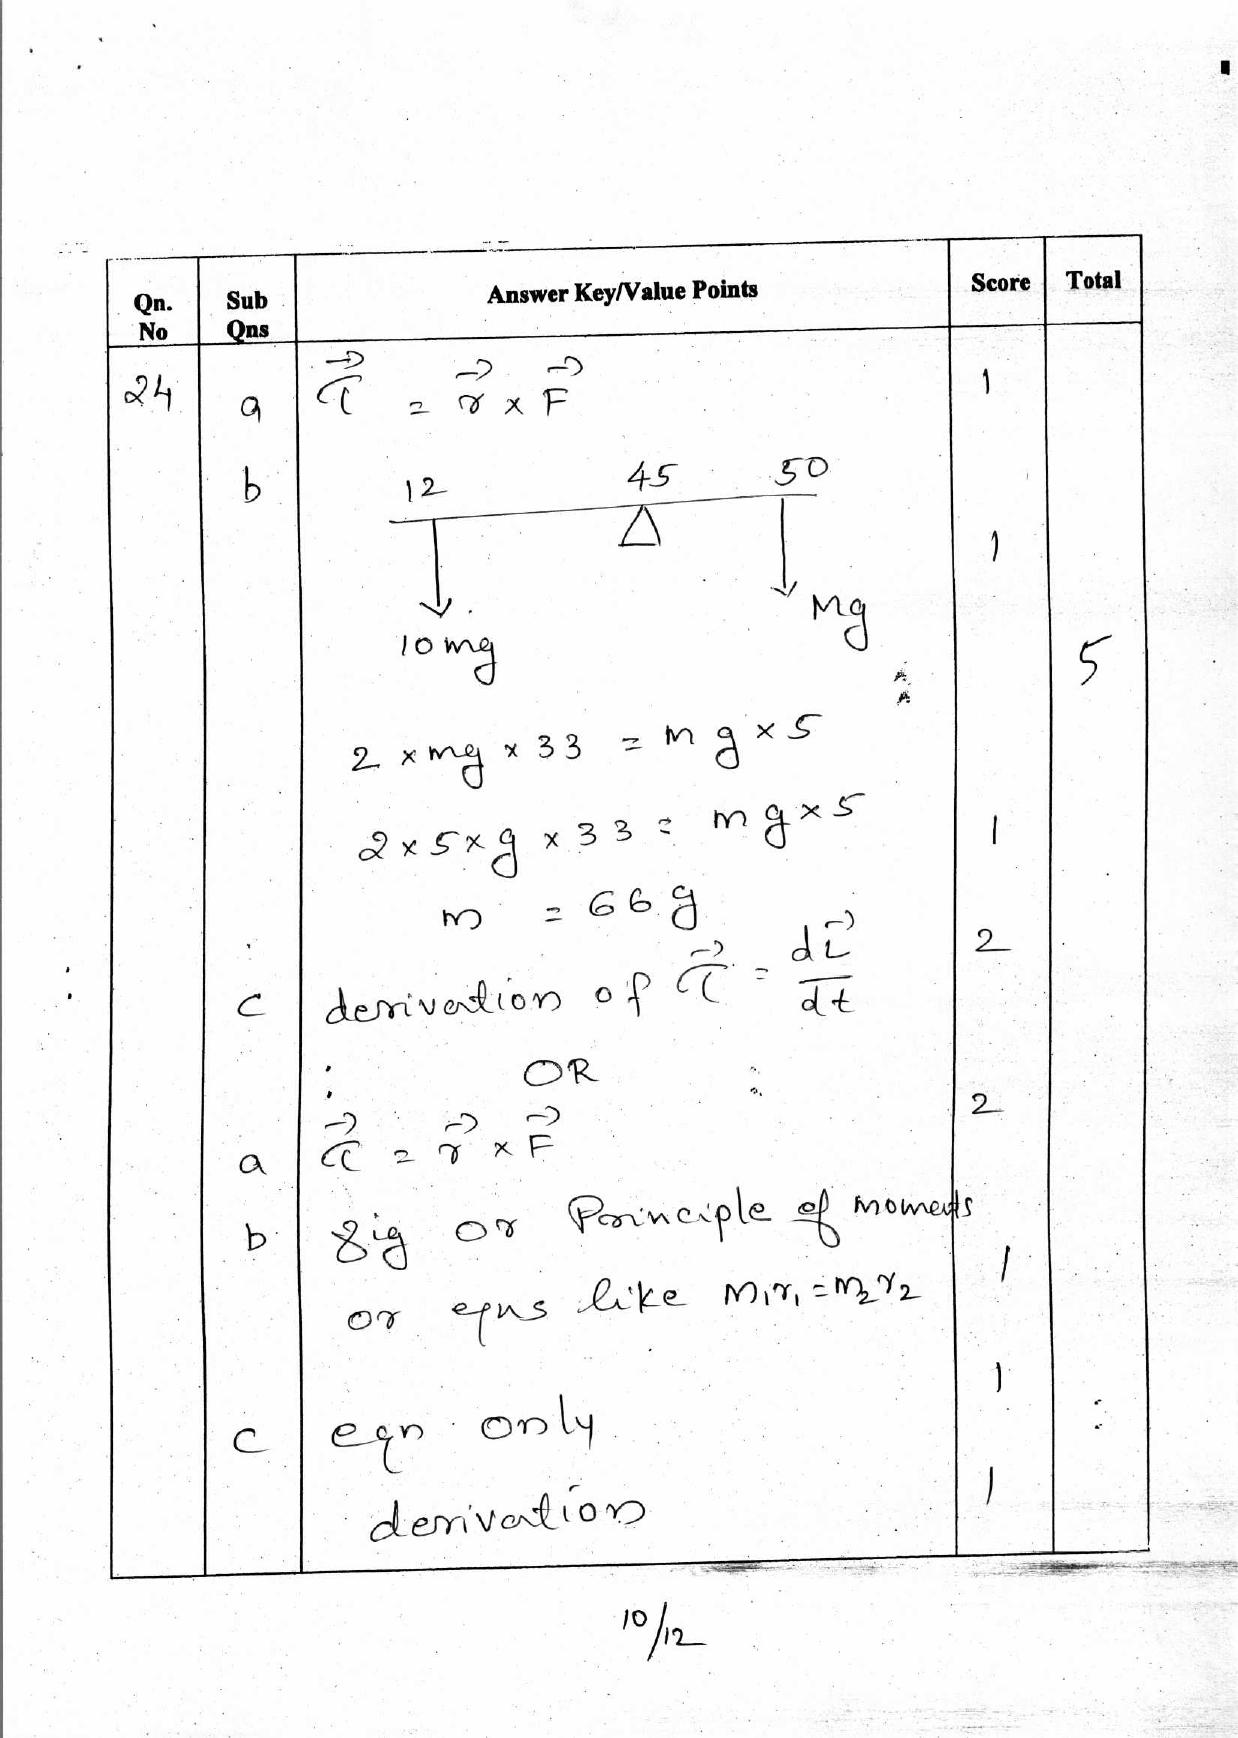 Qn. No Sub Qns Answer Key/Value Points Score Total
24 a τ⃗ = r⃗ × F⃗ 1
b 12 45 50
1
10mg Mg
5
2 × mg × 33 = mg × 5
2 × 5 × g × 33 = mg × 5 1
m = 66 g
c derivation of τ⃗ = dL⃗/dt 2
OR
a τ⃗ = r⃗ × F⃗ 2
b fig or Principle of moments
or eqns like m₁r₁ = m₂r₂ 1
c eqn only 1
derivation 1
10/12